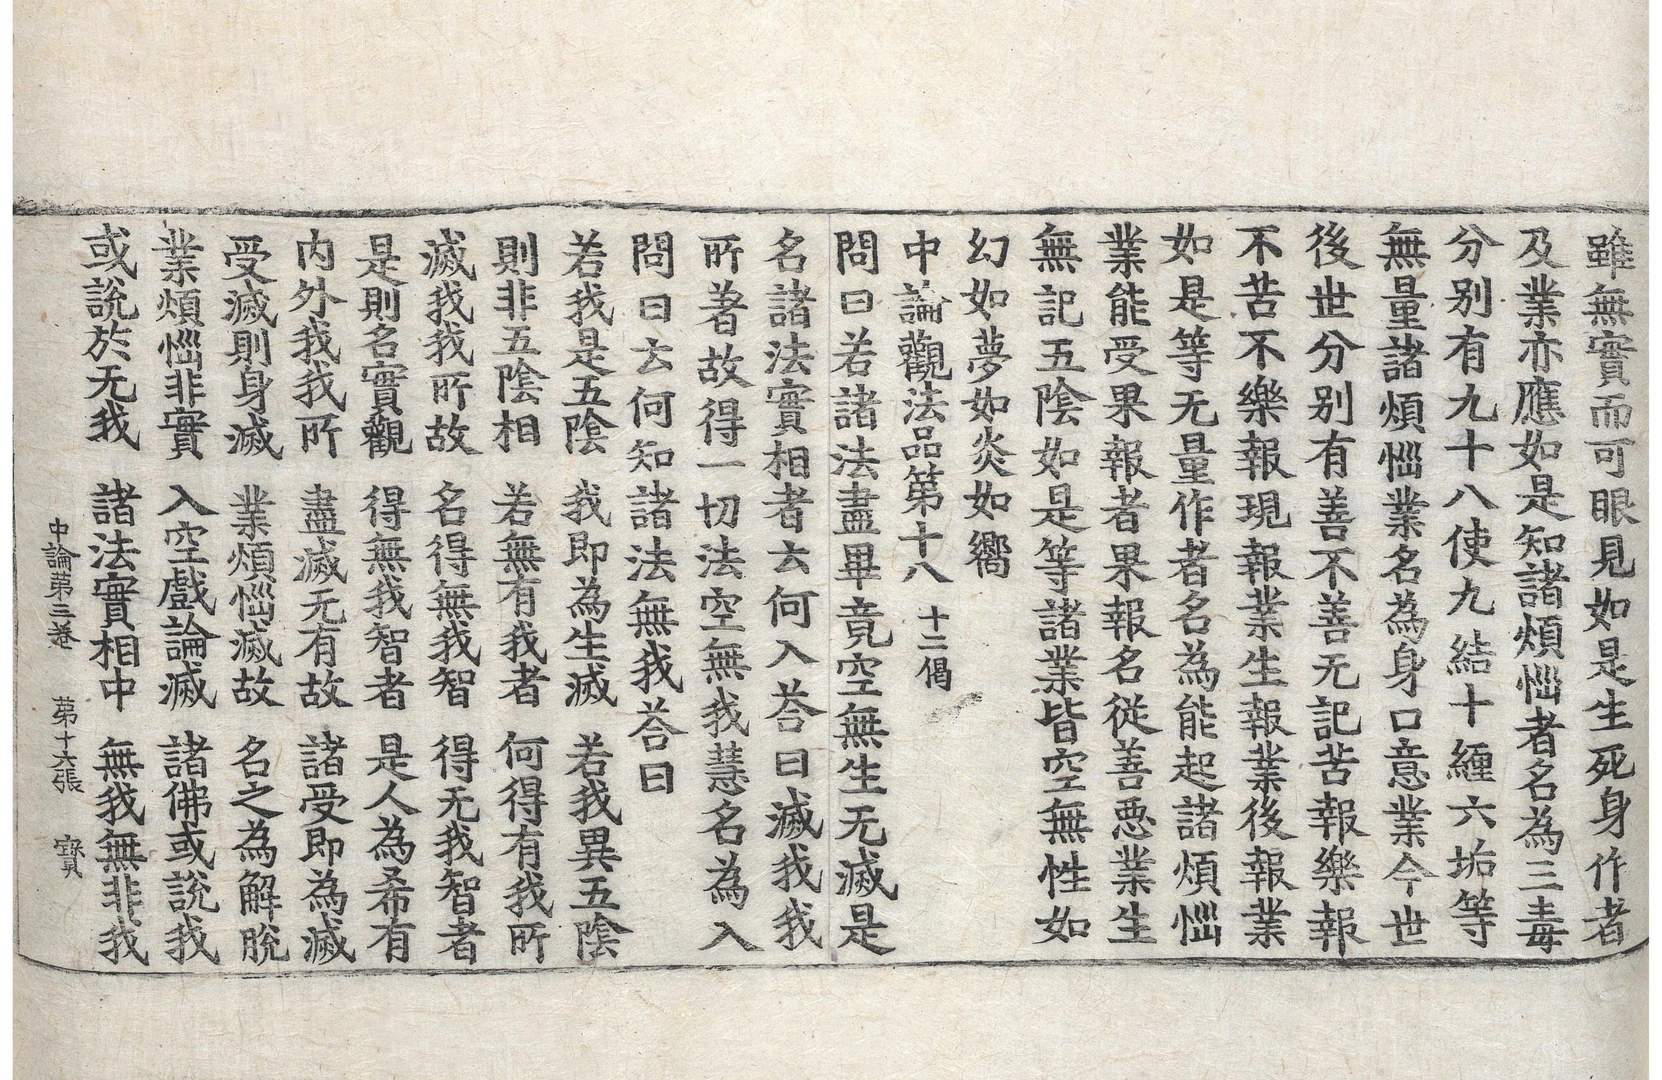 雖無實而可眼見如是生死身作者
及業亦應如是知諸煩惱者名為三毒
分別有九十八使九結十纏六垢等
無量諸煩惱業名為身口意業今世
後世分別有善不善无記苦報樂報
不苦不樂報現報業生報業後報業
如是等无量作者名為能起諸煩惱
業能受果報者果報名從善惡業生
無記五陰如是等諸業皆空無性如
幻如夢如炎如嚮
中論觀法品第十八 十二偈
問曰若諸法盡畢竟空無生无滅是
名諸法實相者云何入荅曰滅我我
所著故得一切法空無我慧名為入
問曰云何知諸法無我荅曰
若我是五陰 我即為生滅 若我異五陰
則非五陰相 若無有我者 何得有我所
滅我我所故 名得無我智 得无我智者
是則名實觀 得無我智者 是人為希有
內外我我所 盡滅无有故 諸受即為滅
受滅則身滅 業煩惱滅故 名之為解脫
業煩惱非實 入空戲論滅 諸佛或說我
或說於无我 諸法實相中 無我無非我
中論第三卷 第十六張 寳